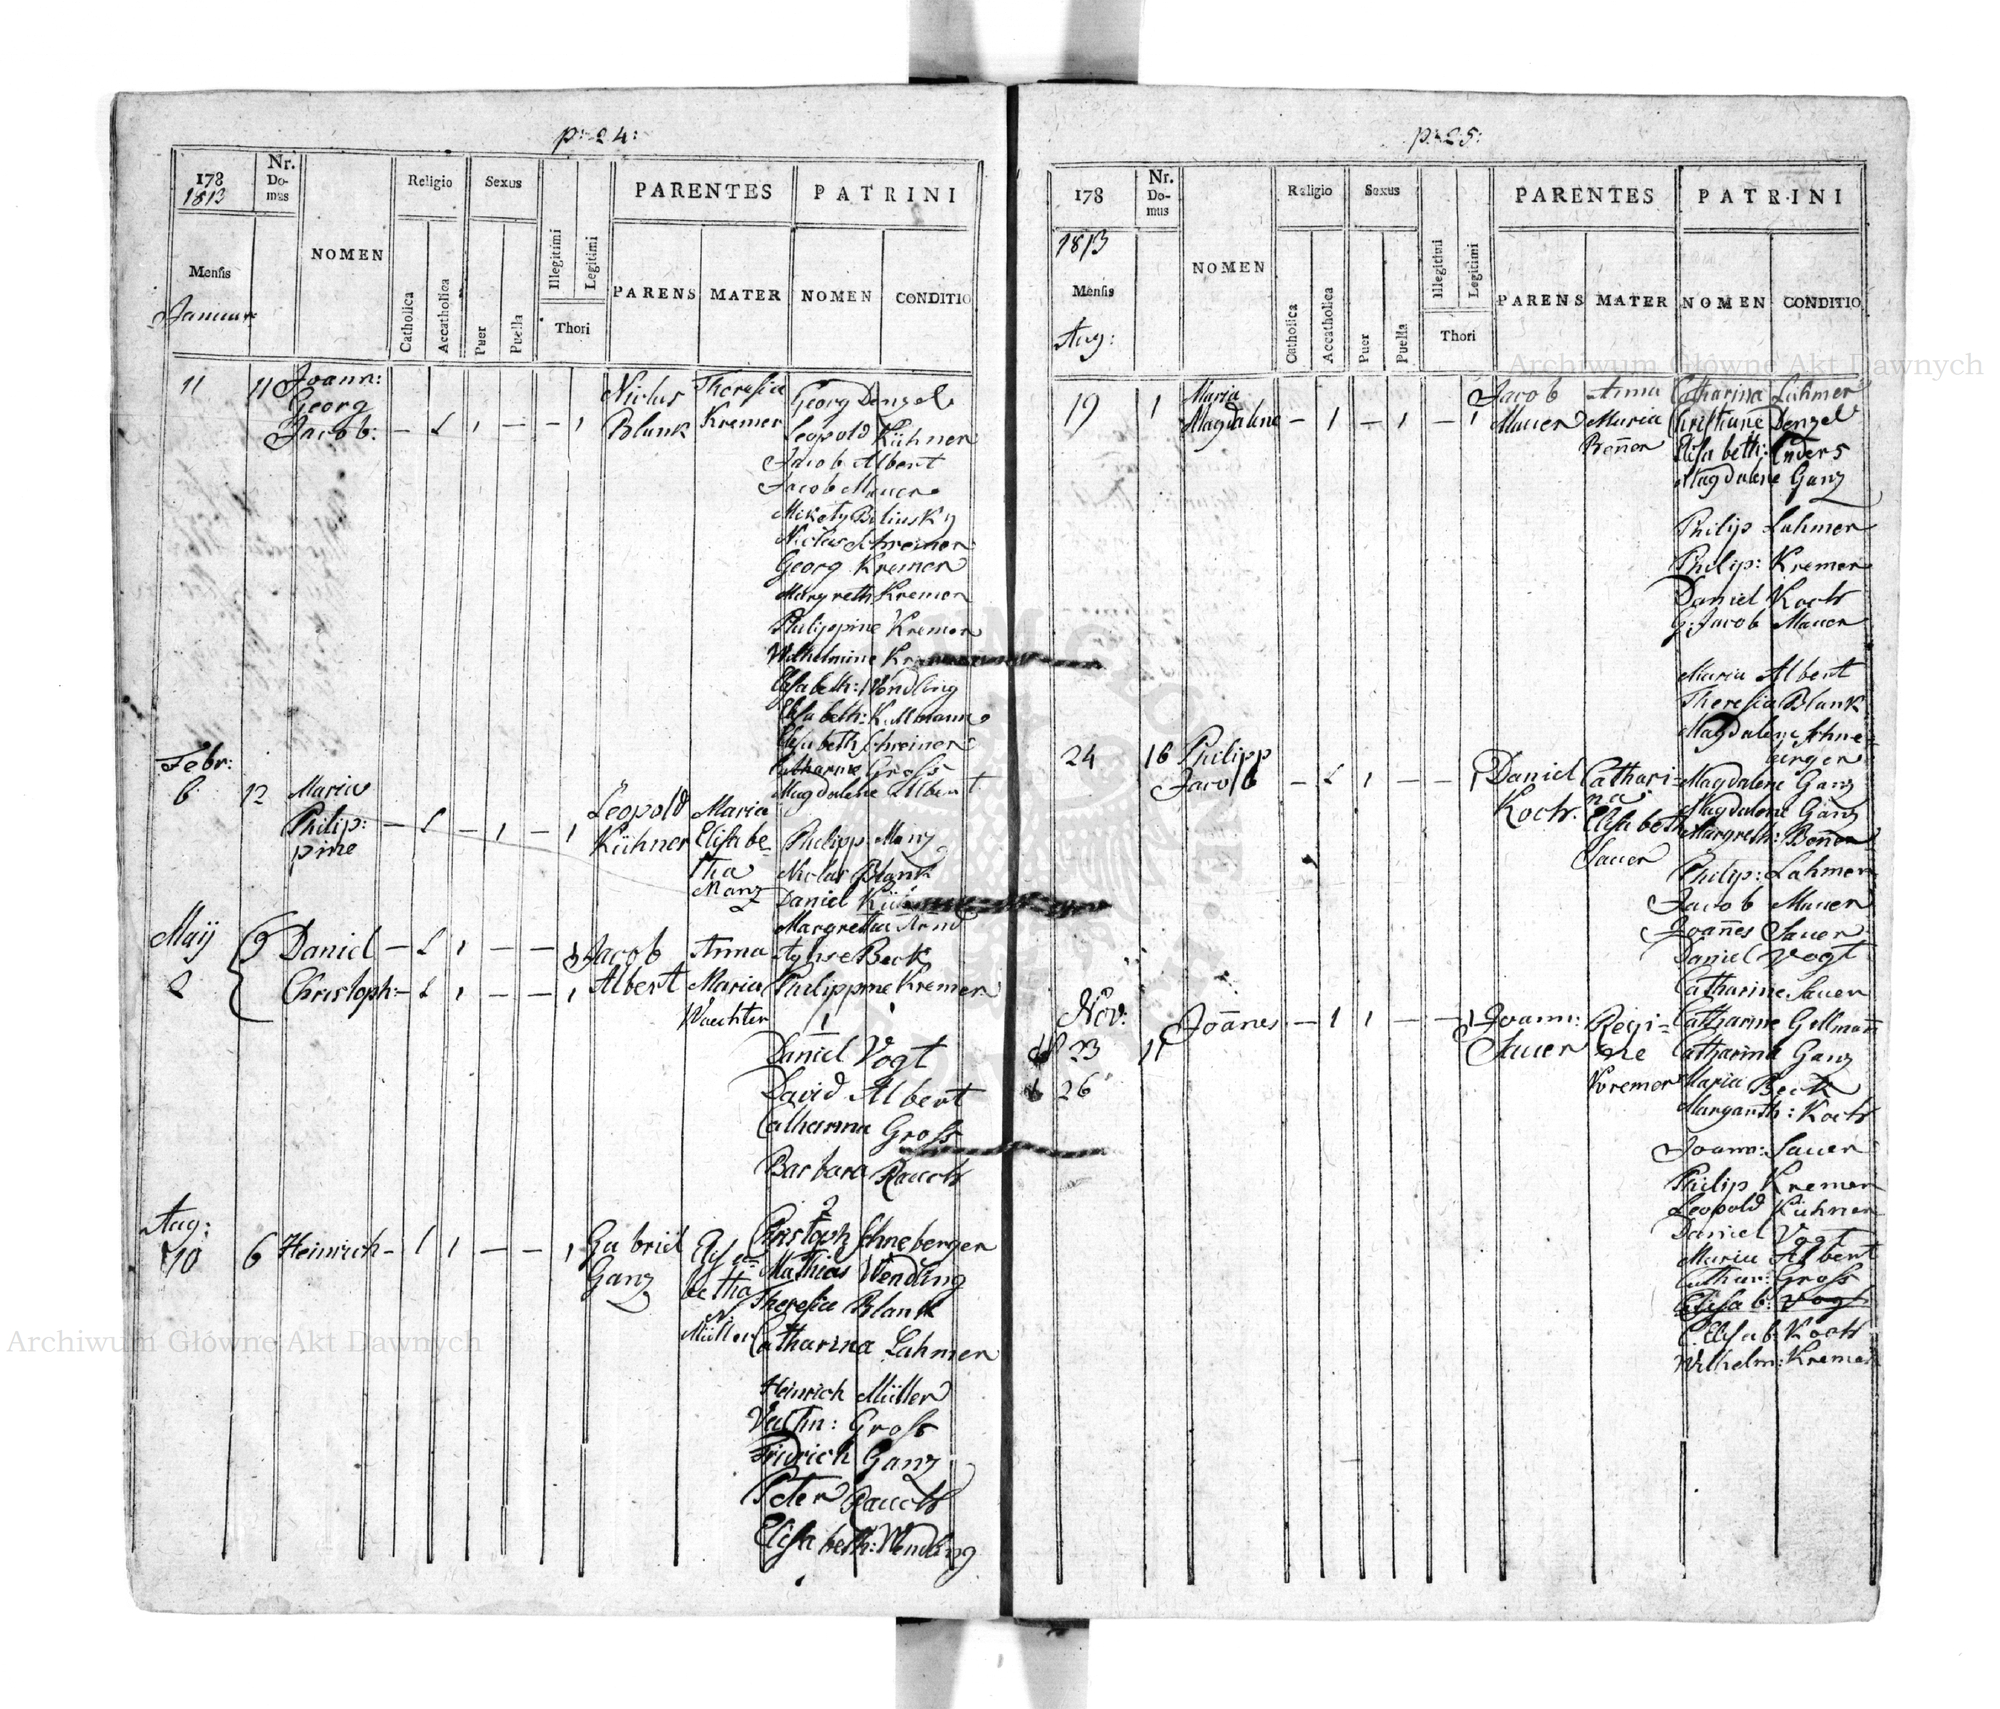 p: 24:
178
1813
Nr.
Do-
mus
NOMEN
Religio
Sexus
PARENTES
PATRINI
Mensis
Januar:
Catholica
Accatholica
Puer
Puella
Illegitimi
Legitimi
Thori
PARENS
MATER
NOMEN
CONDITIO
11 11 Joann:
Georg
Jacob: — 1 1 — — 1
Niclas
Blank
Theresia
Kremer
Georg Denzel
Leopold Kühner
Jacob Albert
Jacob Mauer
Niclas Schreiner
Georg Kremer
Margreth Kremer
Philippine Kremer
Wilhelmine
Elisabeth: Wendling
Elisabeth:
Elisabeth Schreiner
Catharine Gross
Magdalene Albert
Febr:
6 12 Maria
Philip:
pine — 1 — 1 — 1
Leopold
Kühner
Maria
Elisabe-
tha
Manz
Philipp Manz
Niclas Blank
Daniel
Margretha
Maij
2
9 Daniel — 1 1 — — 1
Christoph: — 1 1 — — 1
Jacob
Albert
Anna
Maria
Waechter
Beck
Philippine Kremer
1
Daniel Vogt
David Albert
Catharina Gross
Barbara Rauch
2
Aug:
10 6 Heinrich — 1 1 — — 1
Gabriel
Ganz
Elisa=
betha
Müller
Christoph Schneberger
Mathias Wendling
Theresia Blank
Catharina Lahmer
Heinrich Müller
Valtin: Gross
Fridrich Ganz
Peter Rauch
Elisabeth: Wendling
p: 25:
178
1813
Nr.
Do-
mus
NOMEN
Religio
Sexus
PARENTES
PATRINI
Mensis
Aug:
Catholica
Accatholica
Puer
Puella
Illegitimi
Legitimi
Thori
PARENS
MATER
NOMEN
CONDITIO
19 1 Maria
Magdalene — 1 — 1 — 1
Jacob
Mauer
Anna
Maria
Bener
Catharina Lahmer
Christiane Denzel
Elisabeth: Enders
Magdalene Ganz
Philip Lahmer
Philip: Kremer
Daniel Koch
G: Jacob Mauer
Maria Albert
Theresia Blank
Magdalene Schne=
berger
24 16 Philipp
Jacob — 1 1 — — 1
Daniel
Koch
Cathari=
na
Elisabeth
Sauer
Magdalene Ganz
Magdalene Ganz
Margreth: Bener
Philip: Lahmer
Jacob Mauer
Joanes Sauer
Daniel Vogt
Catharine Sauer
Nov:
23 11 Joanes — 1 1 — — 1
26
Joann:
Sauer
Regi=
ne
Kremer
Catharine Gellman
Catharina Ganz
Maria Beck
Margareth: Koch
Joann: Sauer
Philip Kremer
Leopold Kühner
Daniel Vogt
Maria Albert
Cathar: Gross
Elisab: Vogt
Elisab: Koch
Wilhelm: Kremer
Archiwum Główne Akt Dawnych
Archiwum Główne Akt Dawnych